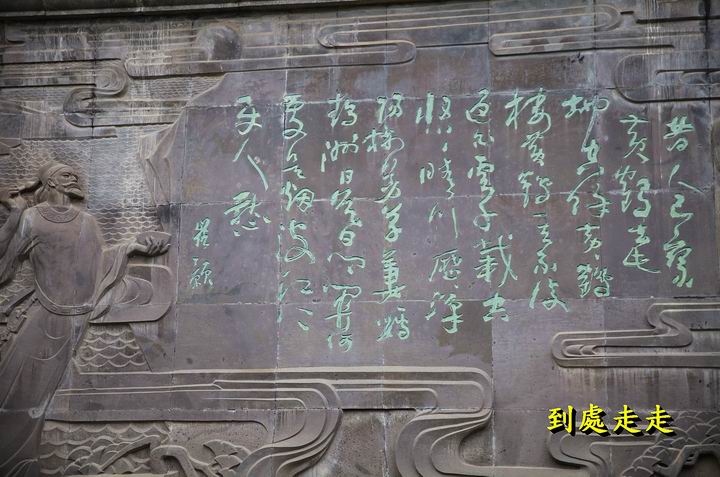 昔人已乘
黄鶴去
此地空餘黄鶴
樓黄鶴一去不復
返白雲千載空
悠悠晴川歷歷漢
陽樹芳草萋萋鸚
鵡洲日暮鄉關何
處是烟波江上
使人愁
崔顥
到處走走